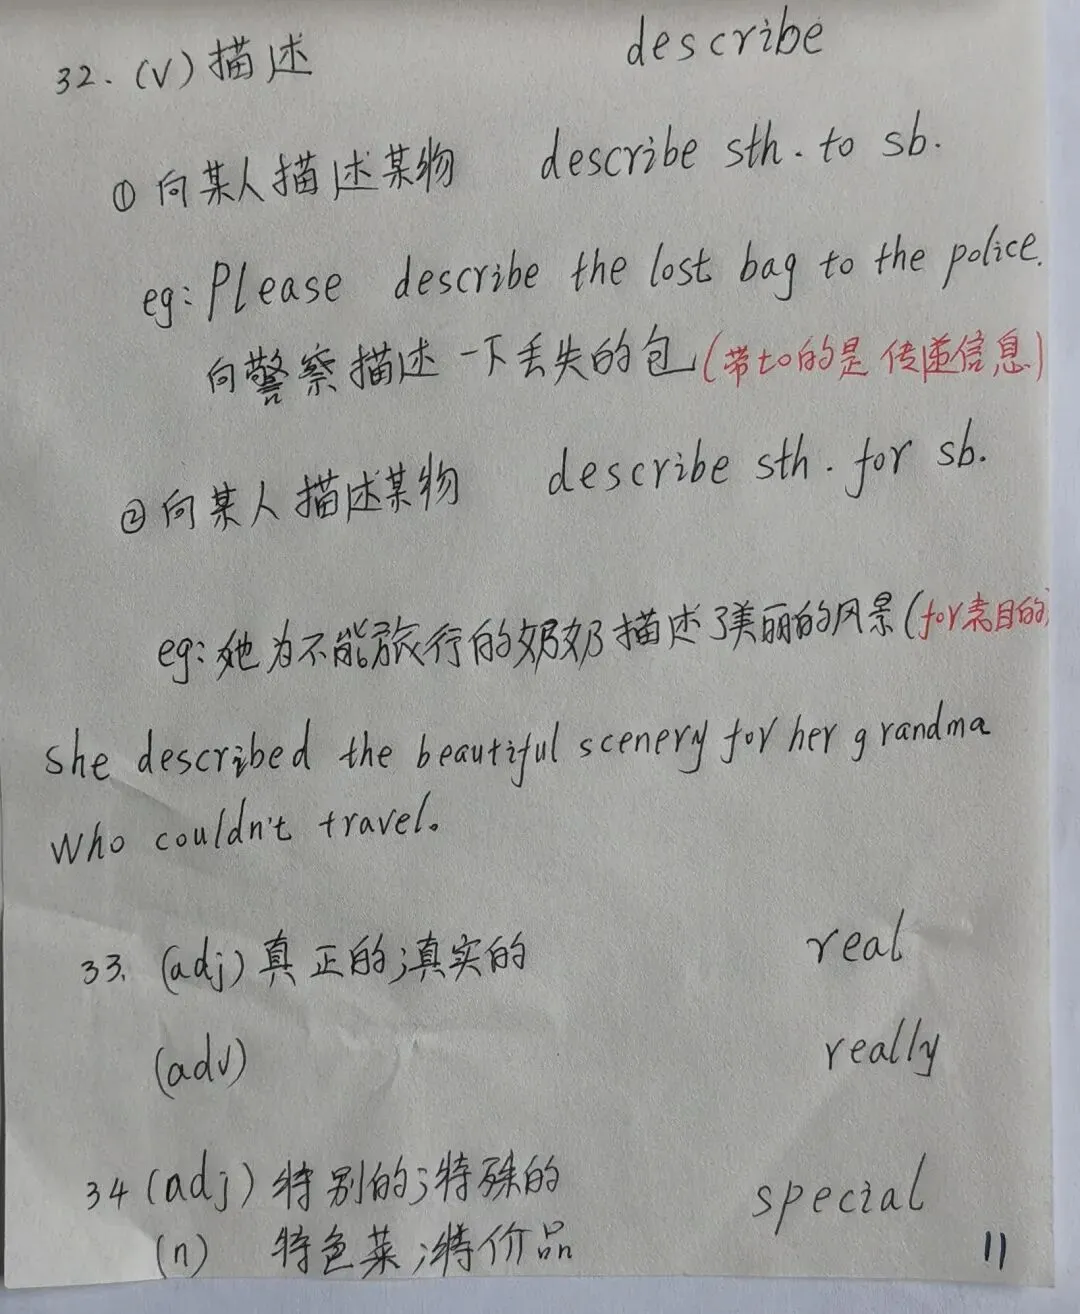 32. (v) 描述 describe
① 向某人描述某物 describe sth. to sb.
eg: Please describe the lost bag to the police.
向警察描述一下丢失的包 (带to的是传递信息)
② 向某人描述某物 describe sth. for sb.
eg: 她为不能旅行的奶奶描述了美丽的风景 (for表目的)
she described the beautiful scenery for her grandma
who couldn't travel.
33. (adj) 真正的;真实的 real
(adv) really
34 (adj) 特别的;特殊的 special
(n) 特色菜;特价品
11